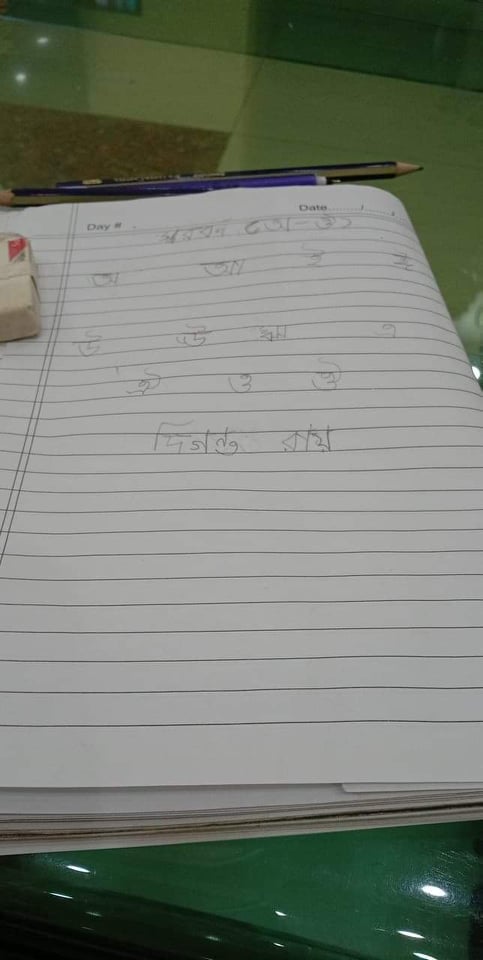 Day #
Date......./......./.......
স্বরবর্ণ (অ-ঔ)
অ আ ই ঈ
উ ঊ ঋ এ
ঐ ও ঔ
দিগন্ত রায়